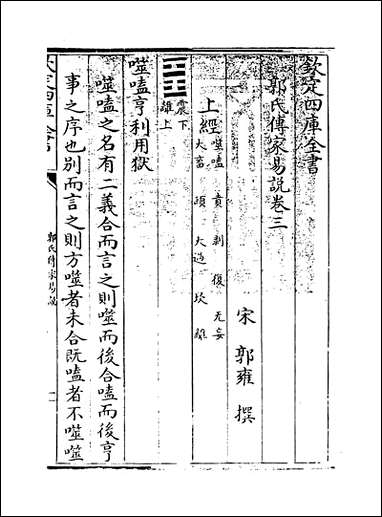 欽定四庫全書
郭氏傳家易說卷三
宋 郭雍 撰
上經 噬嗑 賁 剝 復 无妄
大畜 頤 大過 坎 離
震下
離上
噬嗑亨利用獄
噬嗑之名有二義合而言之則噬而後合嗑而後亨
事之序也別而言之則方噬者未合既嗑者不噬噬
郭氏傳家易說